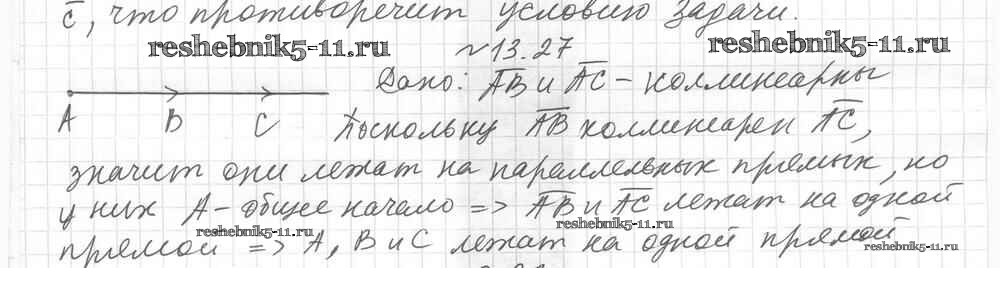 c̅, что противоречит условию задачи.
reshebnik5-11.ru
№13.27
reshebnik5-11.ru
Дано: A̅B̅ и A̅C̅ - коллинеарны
A B C
Поскольку A̅B̅ коллинеарен A̅C̅,
значит они лежат на параллельных прямых, но
у них A - общее начало => A̅B̅ и A̅C̅ лежат на одной
reshebnik5-11.ru
прямой => A, B и C лежат на одной прямой
reshebnik5-11.ru